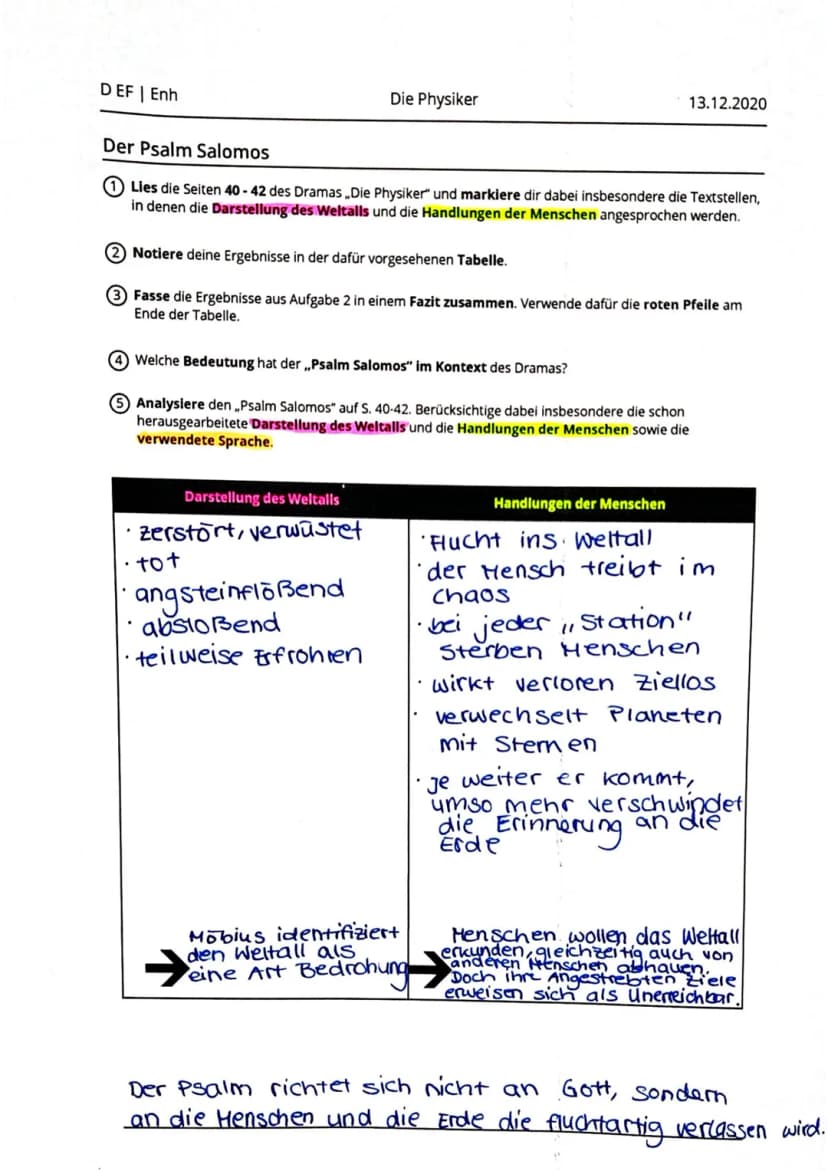 D EF | Enh
Die Physiker
13.12.2020
Der Psalm Salomos
① Lies die Seiten 40 - 42 des Dramas „Die Physiker" und markiere dir dabei insbesondere die Textstellen,
in denen die Darstellung des Weltalls und die Handlungen der Menschen angesprochen werden.
② Notiere deine Ergebnisse in der dafür vorgesehenen Tabelle.
③ Fasse die Ergebnisse aus Aufgabe 2 in einem Fazit zusammen. Verwende dafür die roten Pfeile am
Ende der Tabelle.
④ Welche Bedeutung hat der „Psalm Salomos" im Kontext des Dramas?
⑤ Analysiere den „Psalm Salomos" auf S. 40-42. Berücksichtige dabei insbesondere die schon
herausgearbeitete Darstellung des Weltalls und die Handlungen der Menschen sowie die
verwendete Sprache.
Darstellung des Weltalls
· zerstört, verwüstet
· tot
· angsteinflößend
· abstoßend
· teilweise Erfrohren
Möbius identifiziert
den Weltall als
eine Art Bedrohung
Handlungen der Menschen
· Flucht ins Weltall
· der Mensch treibt im
Chaos
· bei jeder „Station"
sterben Menschen
· wirkt verloren ziellos
· verwechselt Planeten
mit Sternen
· je weiter er kommt,
umso mehr verschwindet
die Erinnerung an die
Erde
Menschen wollen das Weltall
erkunden, gleichzeitig auch von
anderen Menschen abhauen.
Doch ihre Angestrebten Ziele
erweisen sich als Unerreichbar.
Der Psalm richtet sich nicht an Gott, sondern
an die Menschen und die Erde die fluchtartig verlassen wird.